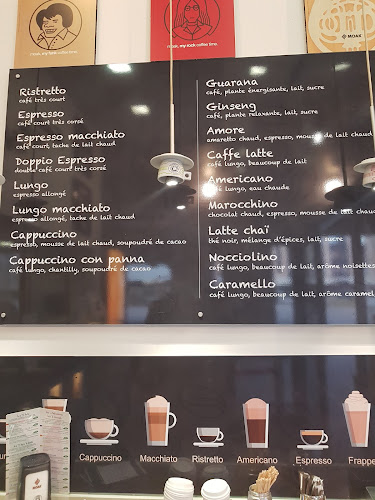 moak, my rock coffee time.
moak, my rock coffee time.
MOAK
Ristretto
café très court
Espresso
café court très corsé
Espresso macchiato
café court, tache de lait chaud
Doppio Espresso
double café court très corsé
Lungo
espresso allongé
Lungo macchiato
espresso allongé, tache de lait chaud
Cappuccino
espresso, mousse de lait chaud, soupoudré de cacao
Cappuccino con panna
café lungo, chantilly, soupoudré de cacao
Guarana
café, plante énergisante, lait, sucre
Ginseng
café, plante relaxante, lait, sucre
Amore
amaretto chaud, espresso, mousse de lait chaud
Caffe latte
café lungo, beaucoup de lait
Americano
café lungo, eau chaude
Marocchino
chocolat chaud, espresso, mousse de lait chaud
Latte chaï
thé noir, mélange d'épices, lait, sucre
Nocciolino
café lungo, beaucoup de lait, arôme noisettes
Caramello
café lungo, beaucoup de lait, arôme caramel
Cappuccino
Macchiato
Ristretto
Americano
Espresso
Frappe